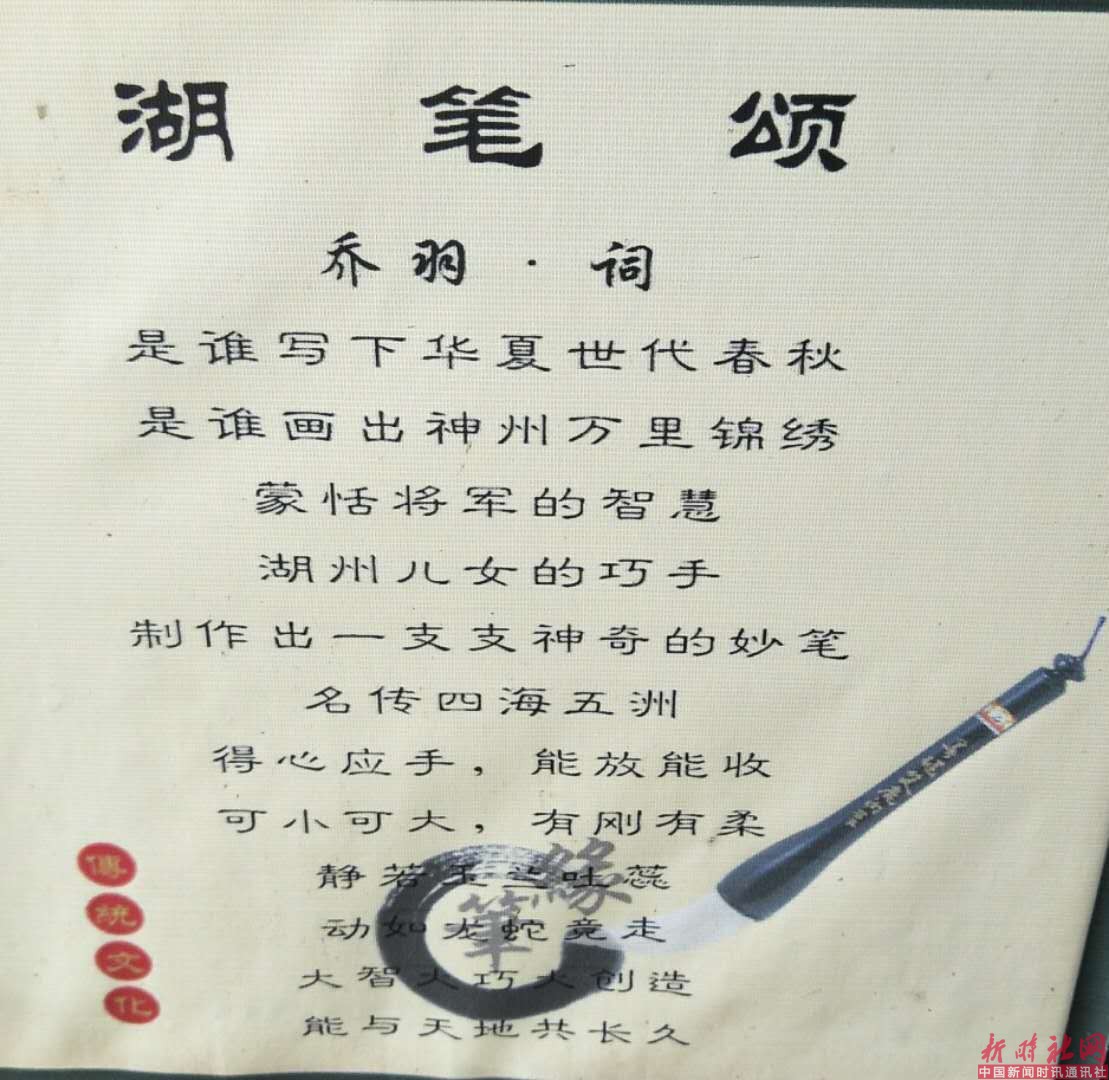 湖笔颂
乔羽·词
是谁写下华夏世代春秋
是谁画出神州万里锦绣
蒙恬将军的智慧
湖州儿女的巧手
制作出一支支神奇的妙笔
名传四海五洲
得心应手，能放能收
可小可大，有刚有柔
静若玉兰吐蕊
动如龙蛇竞走
大智大巧大创造
能与天地共长久
傳統文化
筆緣
新时社网
中国新闻时讯通讯社